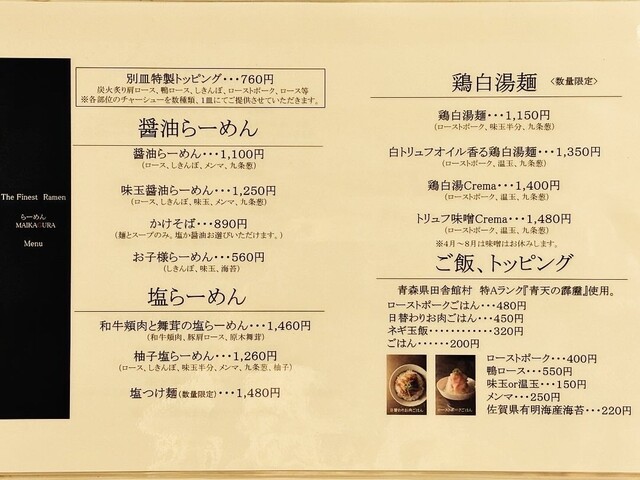 The Finest Ramen
らーめん
MAIKAGURA
Menu
別皿特製トッピング・・・760円
炭火炙り肩ロース、鴨ロース、しきんぼ、ローストポーク、ロース等
※各部位のチャーシューを数種類、1皿にてご提供させていただきます。
醤油らーめん
醤油らーめん・・・1,100円
(ロース、しきんぼ、メンマ、九条葱)
味玉醤油らーめん・・・1,250円
(ロース、しきんぼ、味玉、メンマ、九条葱)
かけそば・・・890円
(麺とスープのみ、塩か醤油お選びいただけます。)
お子様らーめん・・・560円
(しきんぼ、味玉、海苔)
塩らーめん
和牛頬肉と舞茸の塩らーめん・・・1,460円
(和牛頬肉、豚肩ロース、原木舞茸)
柚子塩らーめん・・・1,260円
(ロース、しきんぼ、味玉半分、メンマ、九条葱、柚子)
塩つけ麺(数量限定)・・・1,480円
鶏白湯麺 <数量限定>
鶏白湯麺・・・1,150円
(ローストポーク、味玉半分、九条葱)
白トリュフオイル香る鶏白湯麺・・・1,350円
(ローストポーク、温玉、九条葱)
鶏白湯Crema・・・1,400円
(ローストポーク、温玉、九条葱)
トリュフ味噌Crema・・・1,480円
※4月～8月は味噌はお休みします。
ご飯、トッピング
青森県田舎館村 特Aランク『青天の霹靂』使用。
ローストポークごはん・・・480円
日替わりお肉ごはん・・・450円
ネギ玉飯・・・・・・・・・・・・320円
ごはん・・・・・・200円
日替わりお肉ごはん
ローストポークごはん
ローストポーク・・・400円
鴨ロース・・・550円
味玉or温玉・・・150円
メンマ・・・250円
佐賀県有明海産海苔・・・220円